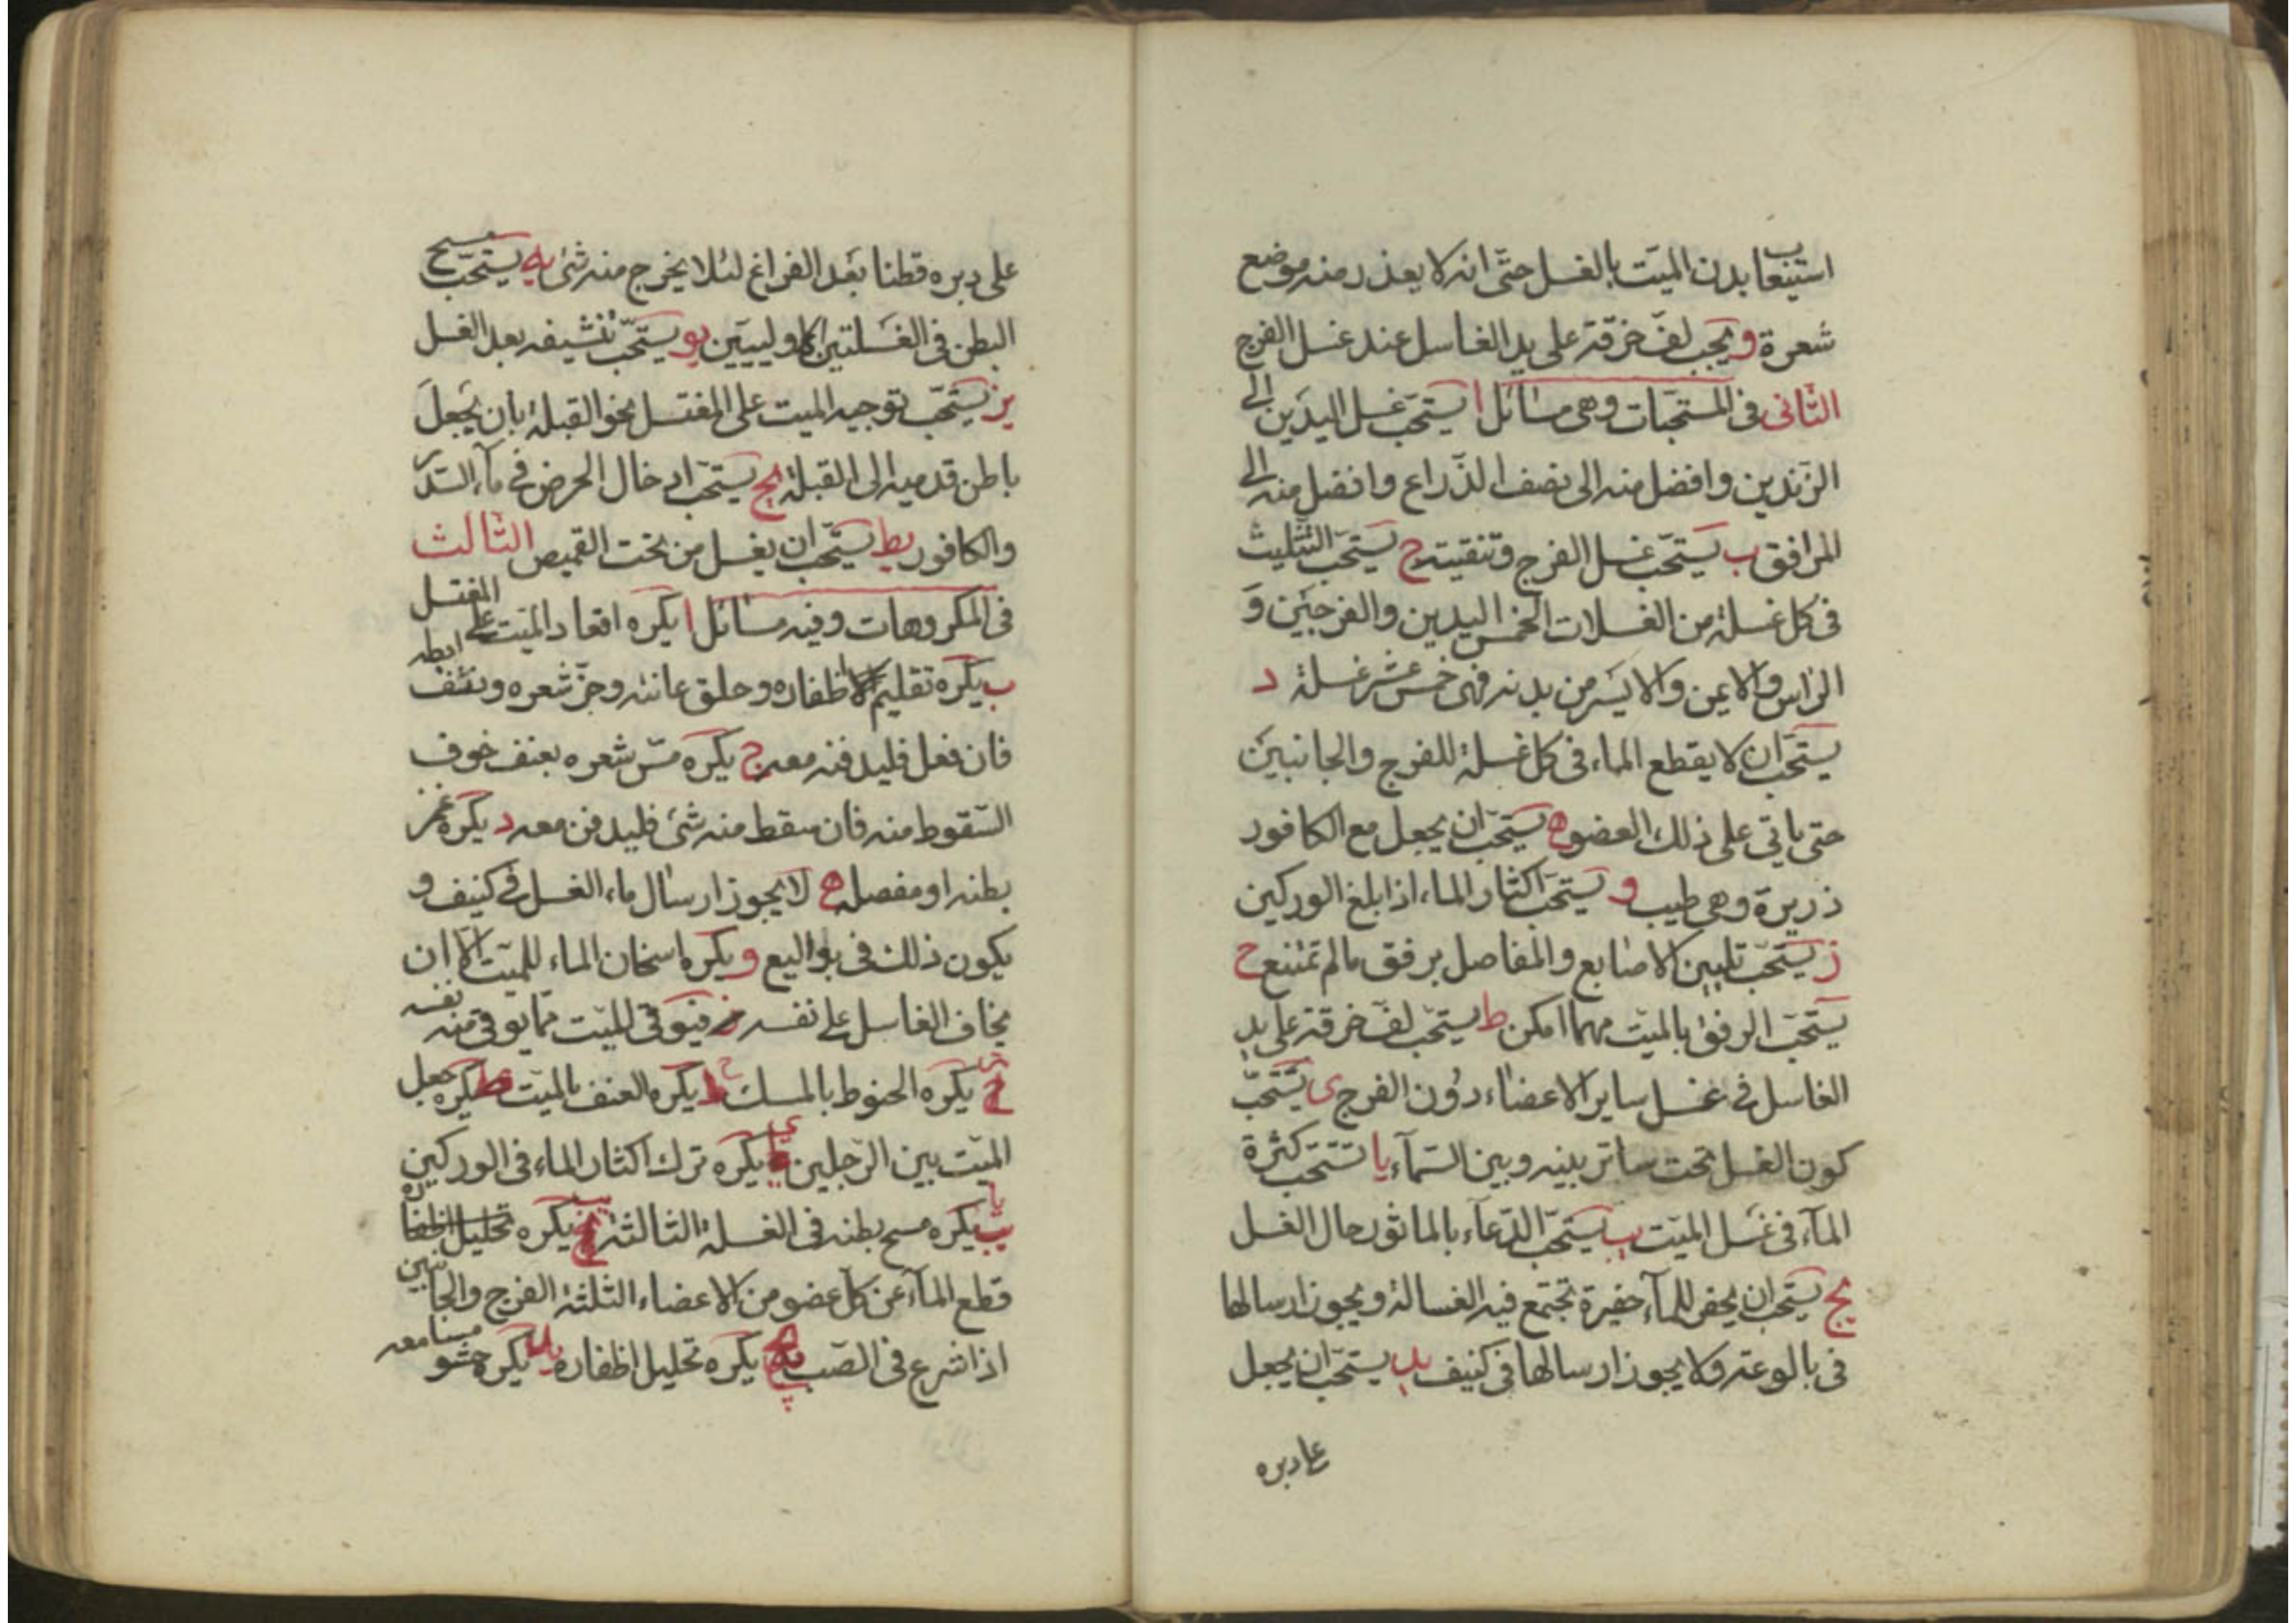 استيعاب بدن الميّت بالغسل حتّى انه لا يعذر منه موضع
شعرة و يجب لفّ خرقة على يد الغاسل عند غسل الفرج
الثّانى فى المستحبّات وهى مسائل ا يستحّب غسل اليدين الى
الزندين وافضل منه الى نصف الذّراع وافضل منه الى
المرافق ب يستحّب غسل الفرج وتنقيته ج يستحّب التثليث
فى كل غسلة من الغسلات الخمس اليدين والفرجين و
الرّاس والايمن والايسر من بدنه فهى خمس عشر غسلة د
يستحّب ان لا يقطع الماء فى كل غسلة للفرج والجانبين
حتى ياتى على ذلك العضو ه يستحّب ان يجعل مع الكافور
ذريرة وهى طيب و يستحّب اكثار الماء اذا بلغ الوركين
ز يستحّب تليين الاصابع والمفاصل برفق مالم تمتنع ح
يستحّب الرفق بالميّت مهما امكن ط يستحّب لفّ خرقة على يد
الغاسل فى غسل ساير الاعضاء دون الفرج ى يستحّب
كون الغسل تحت ساتر بينه وبين السّمآء يا تستحّب كثرة
المآء فى غسل الميّت يب يستحّب الدّعآء بالماثور حال الغسل
يج يستحّب ان يحفر للمآء حفيرة تجتمع فيه الغسالة ويجوز ارسالها
فى بالوعة ولا يجوز ارسالها فى كنيف يد يستحّب ان يجعل
على دبره
على دبره قطنا بعد الفراغ لئلا يخرج منه شئ يه يستحّب مسح
البطن فى الغسلتين الاوليين يو يستحّب تنشيفه بعد الغسل
يز يستحّب توجيه الميت على المغتسل نحو القبلة بان يجعل
باطن قدميه الى القبلة يح يستحّب ادخال الحرض فى مآء السّدر
والكافور يط يستحّب ان يغسل من تحت القميص الثالث
فى المكروهات وفيه مسائل ا يكره اقعاد الميّت على المغتسل
ب يكره تقليم اظفاره وحلق عانته وجزّ شعره ونتف ابطه
فان فعل فليدفنه معه ج يكره مسّ شعره بعنف خوف
السّقوط منه فان سقط منه شئ فليدفن معه د يكره غمز
بطنه او مفصله ه لا يجوز ارسال ماء الغسل فى كنيف و
يكون ذلك فى بواليع و يكره اسخان الماء للميّت الا ان
يخاف الغاسل على نفسه فيتوقّى للميّت ممّا يوقى منه نفسه
ز يكره الحنوط بالمسك ح يكره العنف بالميّت ط يكره جعل
الميّت بين الرّجلين ى يكره ترك اكثار الماء فى الوركين
يا يكره مسح بطنه فى الغسلة الثالثة يب يكره
قطع المآء عن كلّ عضو من الاعضاء الثلثة الفرج والجانبين
اذا شرع فى الصّب يج يكره تخليل اظفاره يد يكره حشو مسامعه